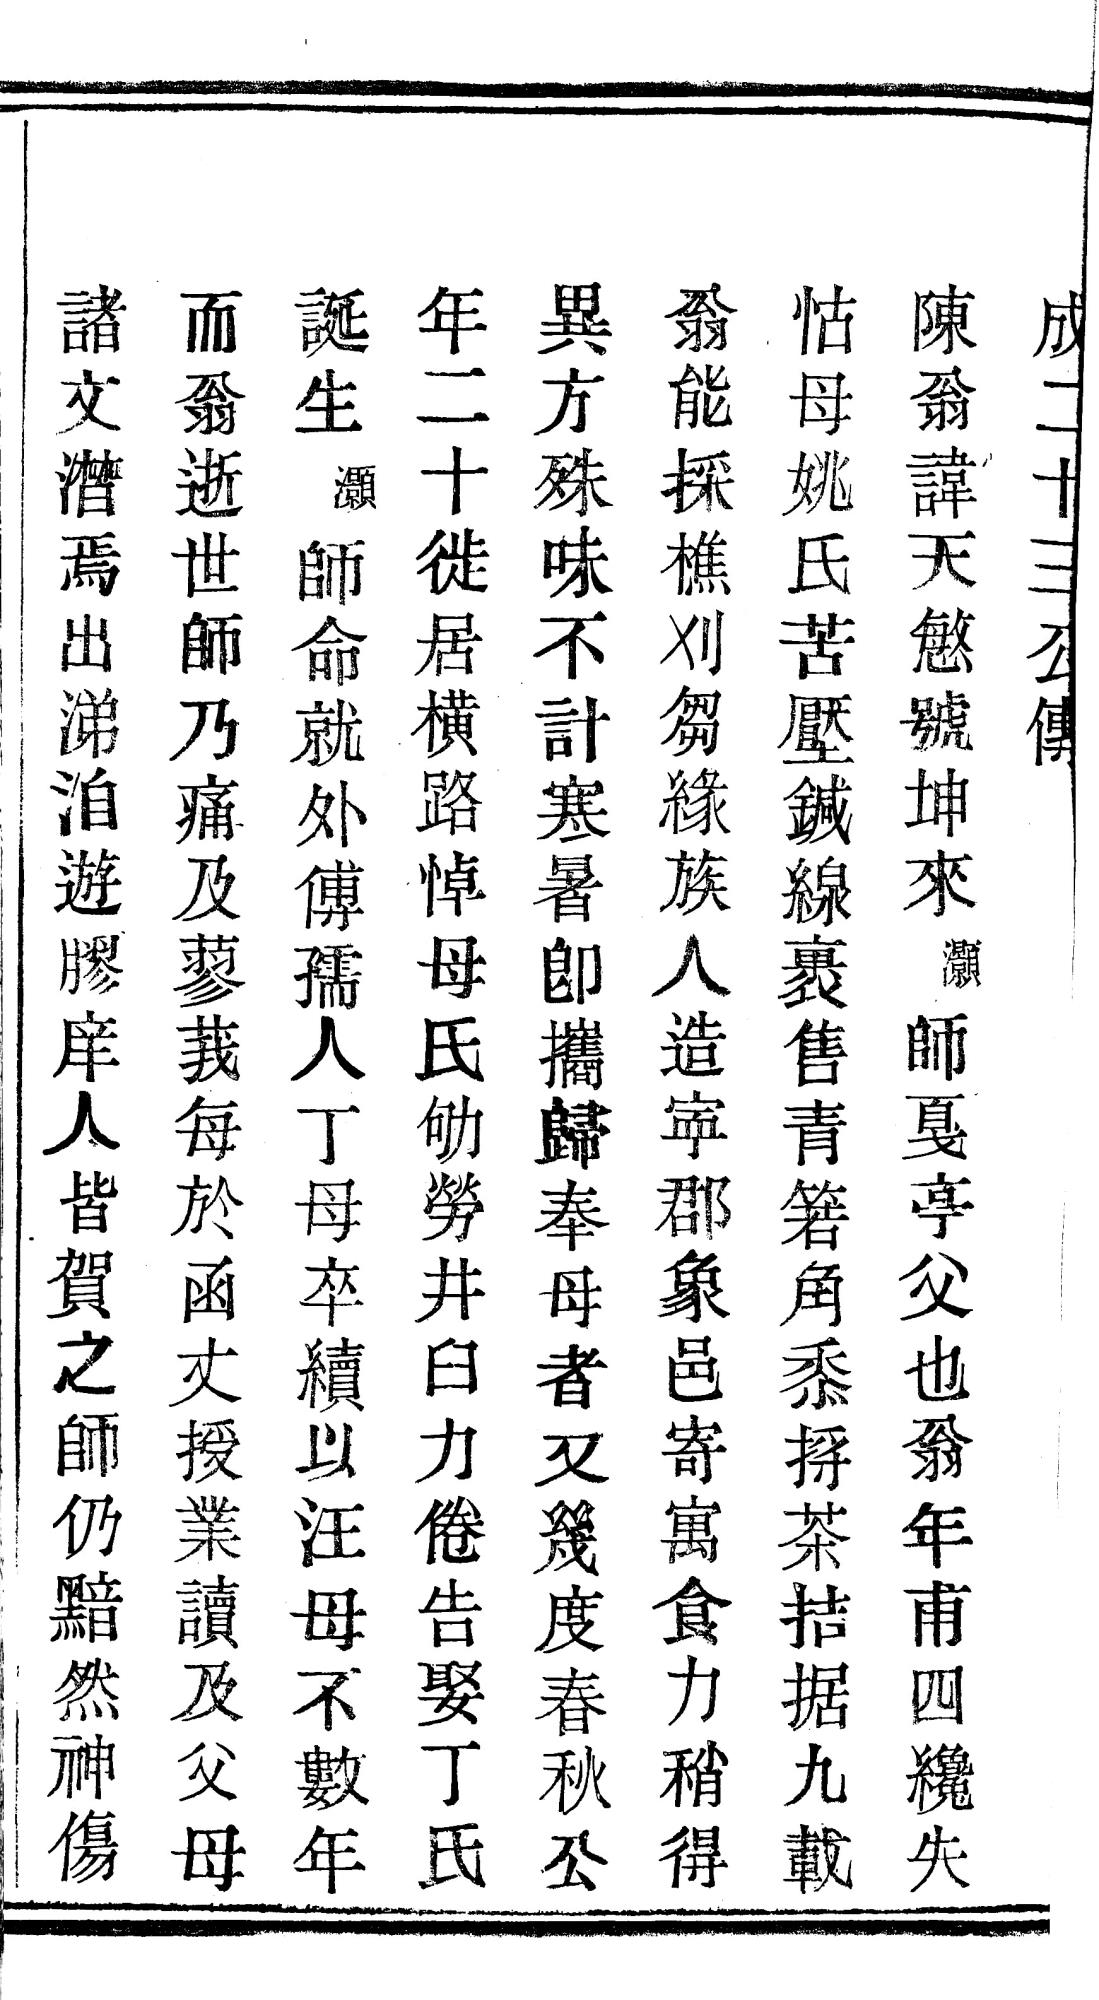 成二十三公傳
陳翁諱天慜號坤來灝師戛亭父也翁年甫四纔失
怙母姚氏苦壓鍼線裹售青箬角黍捋茶拮据九載
翁能採樵刈芻緣族人造寧郡象邑寄寓食力稍得
異方殊味不計寒暑卽攜歸奉母者又幾度春秋公
年二十徙居橫路悼母氏劬勞井臼力倦告娶丁氏
誕生灝師命就外傅孺人丁母卒續以汪母不數年
而翁逝世師乃痛及蓼莪每於函丈授業讀及父母
諸文潸焉出涕洎遊膠庠人皆賀之師仍黯然神傷